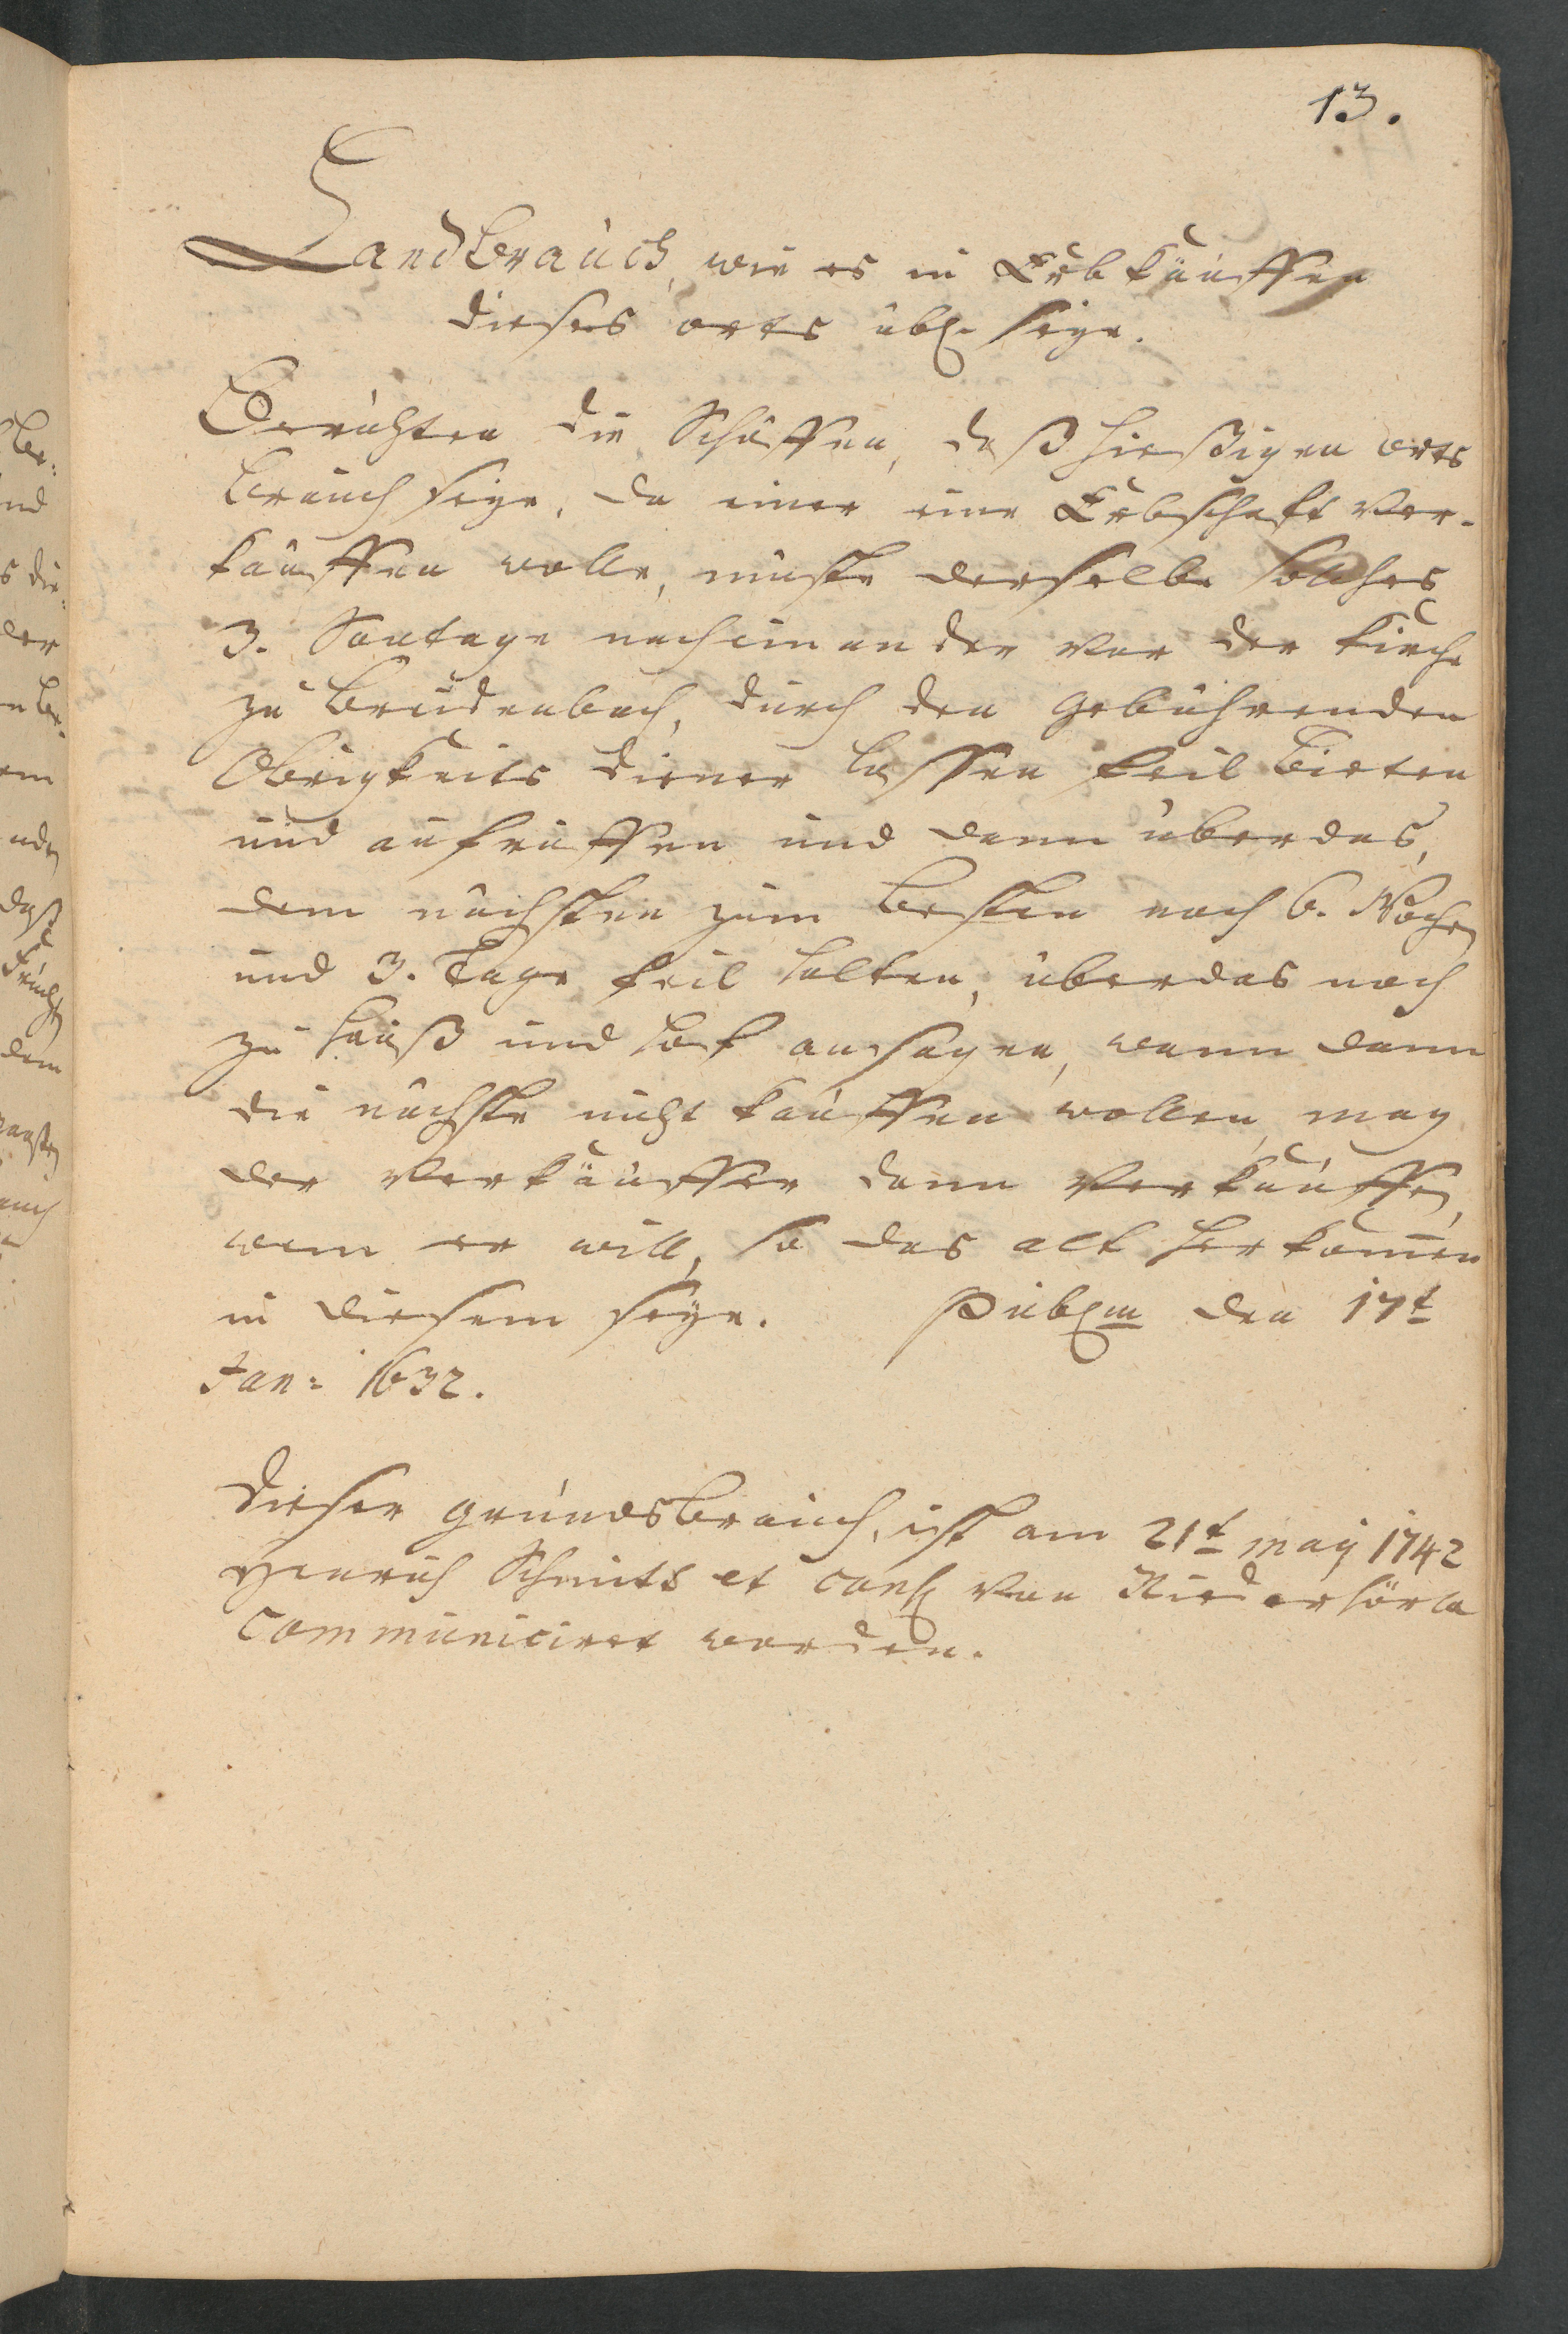 13.
Landbrauch, wie es in Erbkäuffen
dieses orts übl. seye.
Berichten die Schöffen, daß hießigen orts
brauch seye, da einer eine Erbschafft ver-
kauffen wolle, müste derselbe solches
3. Sontage nacheinander vor der Kirche
zu Breidenbach, durch den gebührenden
Obrigkeits diener lassen feil bieten
und aufruffen und dann überdas,
dem nächsten zum besten noch 6. Wochen
und 3. Tage feil halten, überdas noch
zu hauß und hof ansagen, wann dann
die nächste nicht kauffen wollen, mag
der Verkäuffer dann verkauffen,
wem er will, so das alt herkom̄en
in diesem seye. Publm den 17t
Jan: 1632.
Dieser grundsbrauch, ist am 21t maij 1742
Henrich Schmits et cons. von Niederhörla
communiciret worden.
ber:
nd
s die:
der
em
nden
daß
Frucht
dem
auch